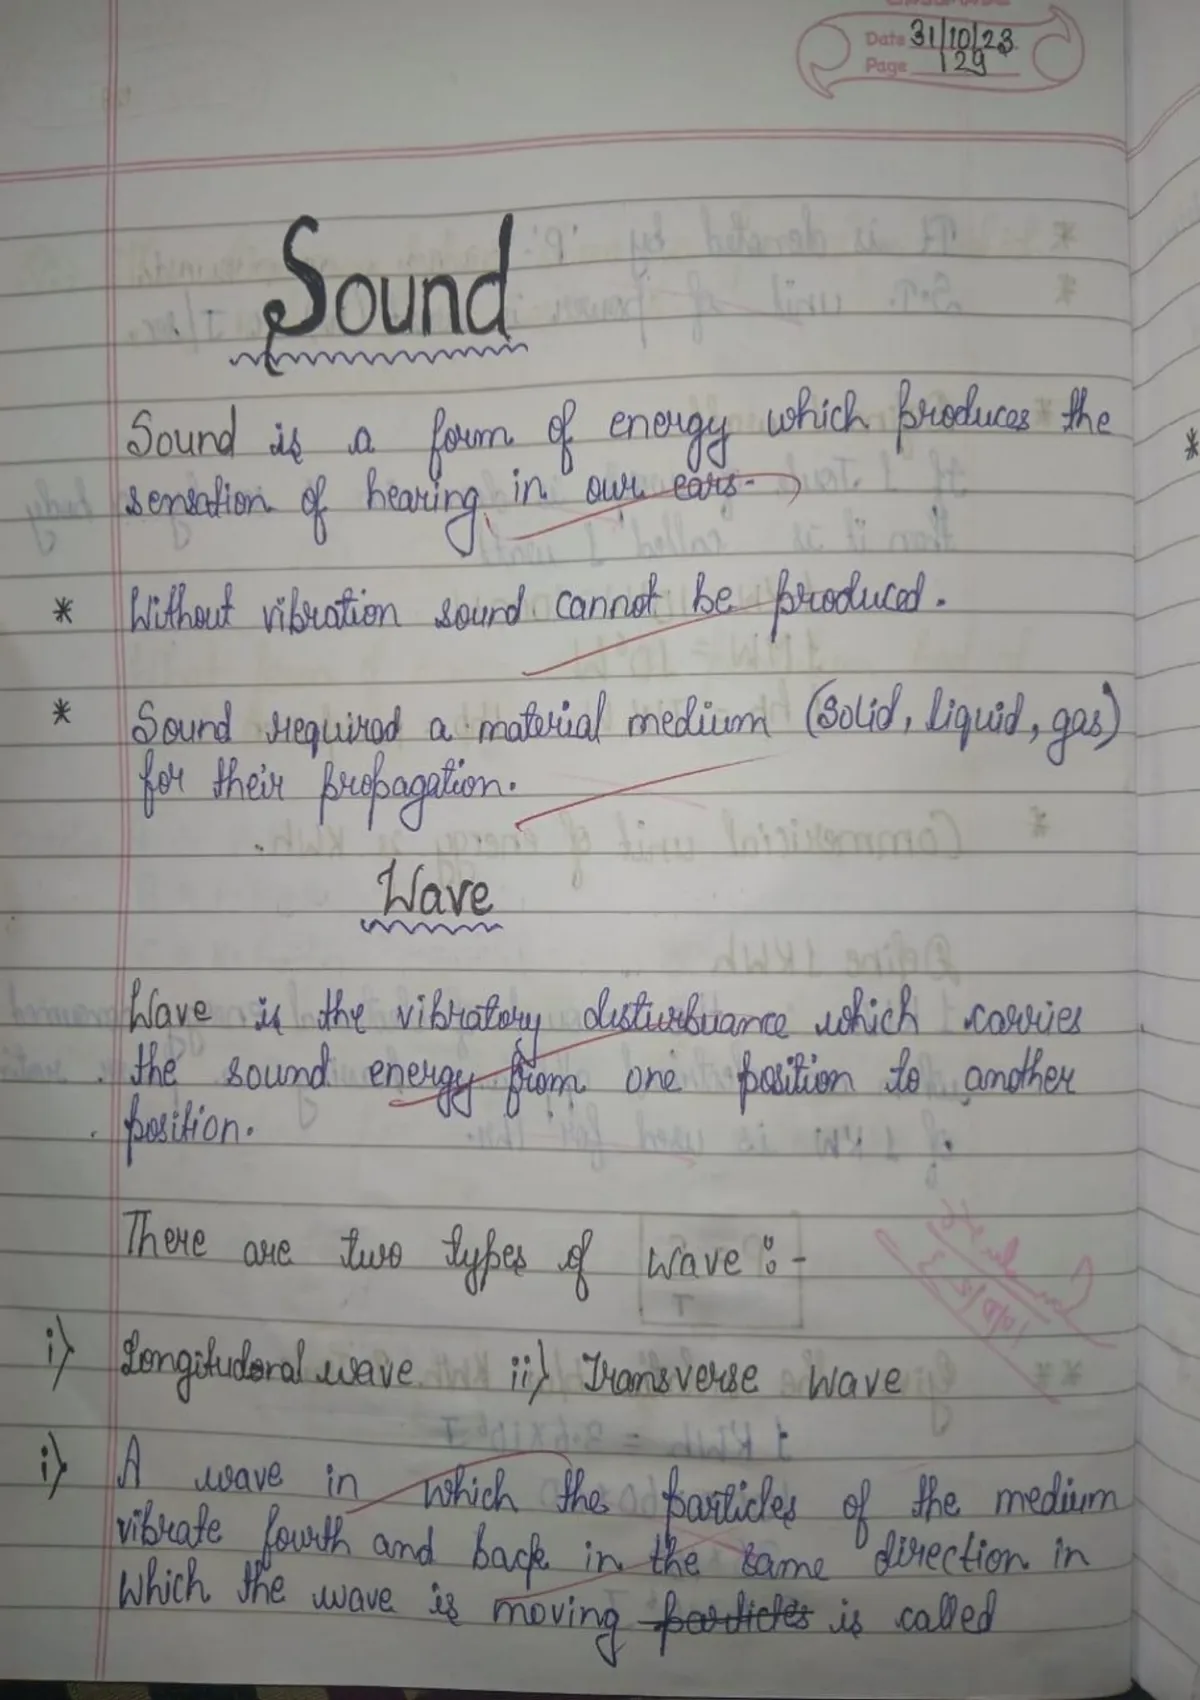 Date 31/10/23
Page 129
Sound
Sound is a form of energy which produces the
sensation of hearing in our ears.
* Without vibration sound cannot be produced.
* Sound required a material medium (solid, liquid, gas)
for their propagation.
Wave
Wave is the vibratory disturbuance which carries
the sound energy from one position to another
position.
There are two types of wave :-
i) Longitudonal wave ii) Transverse wave
i) A wave in which the particles of the medium
vibrate fourth and back in the same direction in
which the wave is moving particles is called